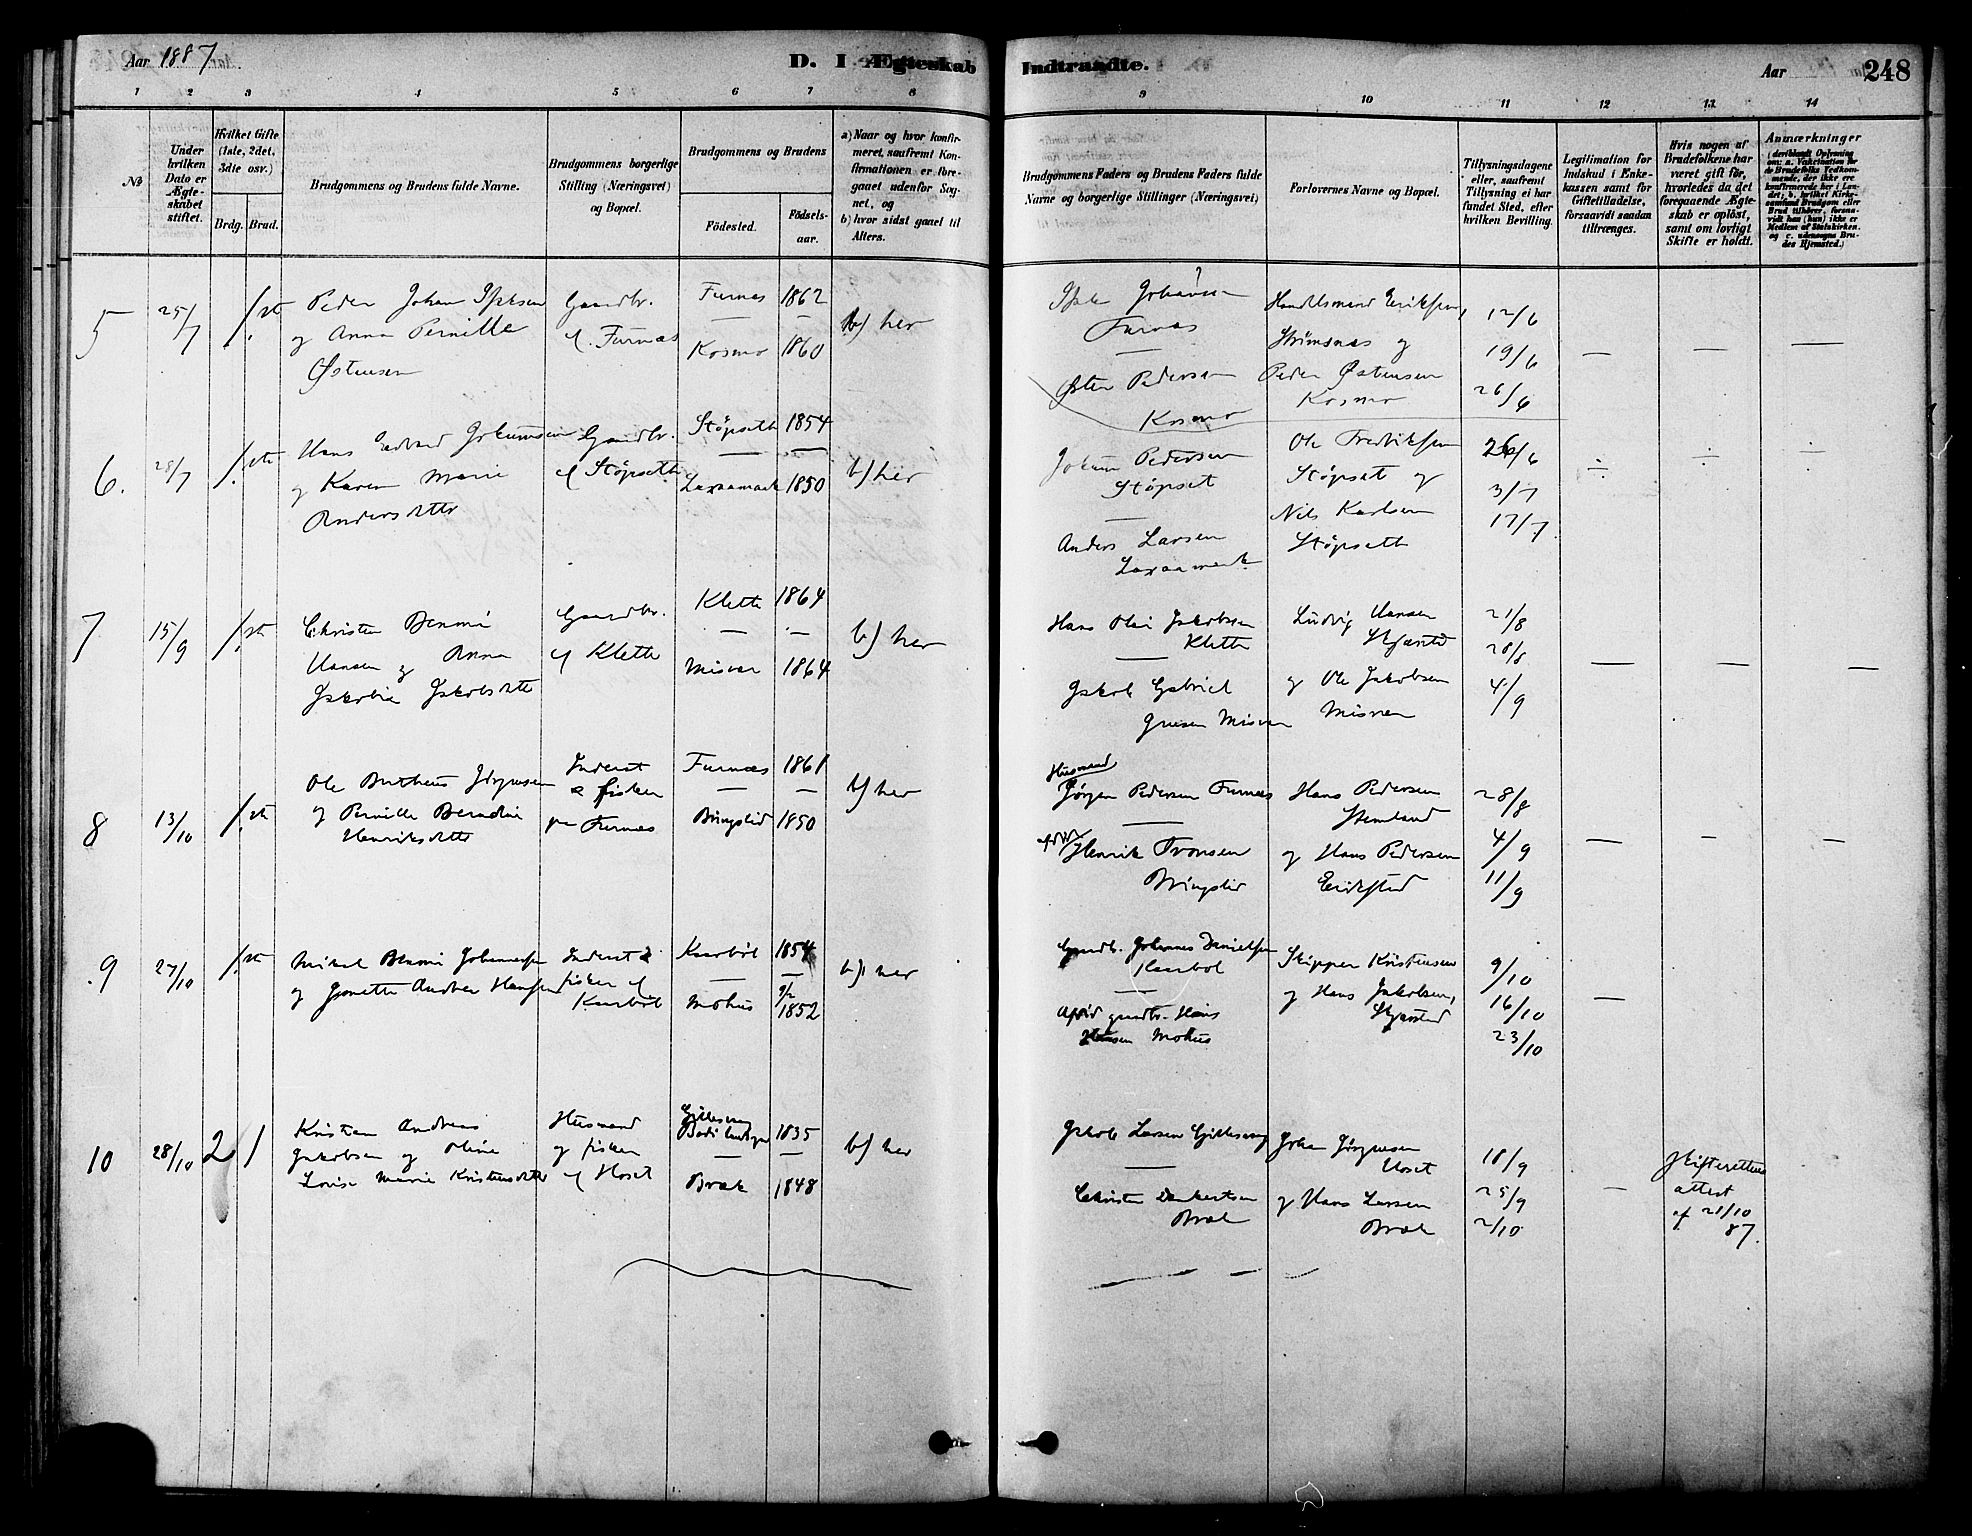 Aar 1887
D. I Ægteskab Indtraadte.
Aar
248
1 2 3 4 5 6 7 8 9 10 11 12 13 14
№
Under hvilken Dato er Ægteskabet stiftet.
Hvilket Gifte (1ste, 2det, 3die osv.)
Brdg. Brud.
Brudgommens og Brudens fulde Navne.
Brudgommens borgerlige Stilling (Næringsvei) og Bopæl.
Brudgommens og Brudens
Fødested.
Fødselsaar.
a) Naar og hvor konfirmeret, saafremt Konfirmationen er foregaaet udenfor Sognet, og
b) hvor sidst gaaet til Alters.
Brudgommens Faders og Brudens Faders fulde Navne og borgerlige Stillinger (Næringsvei)
Forlovernes Navne og Bopæl.
Tillysningsdagene eller, saafremt Tillysning ei har fundet Sted, efter hvilken Bevilling.
Legitimation for Indskud i Enkekassen samt for Giftetilladelse, forsaavidt saadan tiltrænges.
Hvis nogen af Brudefolkene har været gift før, hvorledes da det foregaaende Ægteskab er opløst, samt om lovligt Skifte er holdt.
Anmærkninger
5 25/7 1. ste
Peder Johan
og Anna Pernille
Østensen
Gaardbr.
Furnæs
Furnæs 1862
Kosmo 1860
b) her
Furnæs
Østen Pedersen
Kosmo
Handelsmand Eriksen,
Strømsnæs og
Peder Østensen
Kosmo
12/6
19/6
26/6
6. 28/7 1. ste
Hans Edvard Jokumsen
og Karen Marie
Andersdtter
Gaardbr.
Støpseth
Støpseth 1854
1850
b) her
Jokum Pedersen
Støpset
Anders Larsen
Ole Fredriksen
Støpset og
Nils Karlsen
Støpseth
26/6
3/7
17/7
7 15/9 1. ste
Christen Benoni
Hansen og Anna
Jakobie Jakobsdtter
Gaardbr.
Klette
Klette 1864
Misvær 1864
b) her
Hans Olai Jakobsen
Klette
Jakob Gabriel
Misvær
Ludvig Hansen
Skjærstad
og Ole Jakobsen
Misvær
21/8
28/8
4/9
8 13/10 1. ste
Ole Jørgensen
og Pernille
Henriksdtter
Inderst
& fisker
paa Furnæs
Furnæs 1861
Bringslid 1850
b) her
Husmand
Jørgen Pedersen Furnæs
Henrik
Bringslid
Hans Pedersen
og Hans Pedersen
Erikstad
28/8
4/9
11/9
9 27/10 1. ste
Mikal Benoni Johannessen
og Andrea Hansen
Inderst &
fisker
Kaarbøl
Kaarbøl 1854
Mohus 9/2 1852
b) her
Gaardb. Johannes Danielsen
Kaarbøl
gaardbr. Hans
Hansen Mohus
Skipper Kristensen
og Hans Jakobsen,
Skjærstad
9/10
16/10
23/10
10 28/10 2 1
Kristian Andreas
Jakobsen og Oline
Lovise Marie Kristensdtter
Husmand
og fisker
Hoset
Gillesvaag
1835
Bræk 1848
b) her
Jakob Larsen Gillesvaag
Christen Dankertsen
Bræk
Johan Jørgensen
Hoset
og Hans Larsen
Bræk
18/9
25/9
2/10
Skifterettens
attest
af 21/10
87.